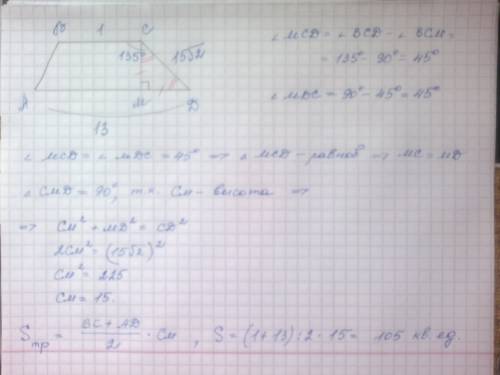 B 1 C
135° 15√2
A M D
13
∠ MCD = ∠ BCD - ∠ BCM =
= 135° - 90° = 45°
∠ MDC = 90° - 45° = 45°
∠ MCD = ∠ MDC = 45° => ∠ MCD - равноб => MC = MD
∠ CMD = 90°, т.к. CM - высота =>
=> CM² + MD² = CD²
2CM² = (15√2)²
CM² = 225
CM = 15.
Sтр = (BC + AD)/2 · CM , S = (1+13):2 · 15 = 105 кв. ед.